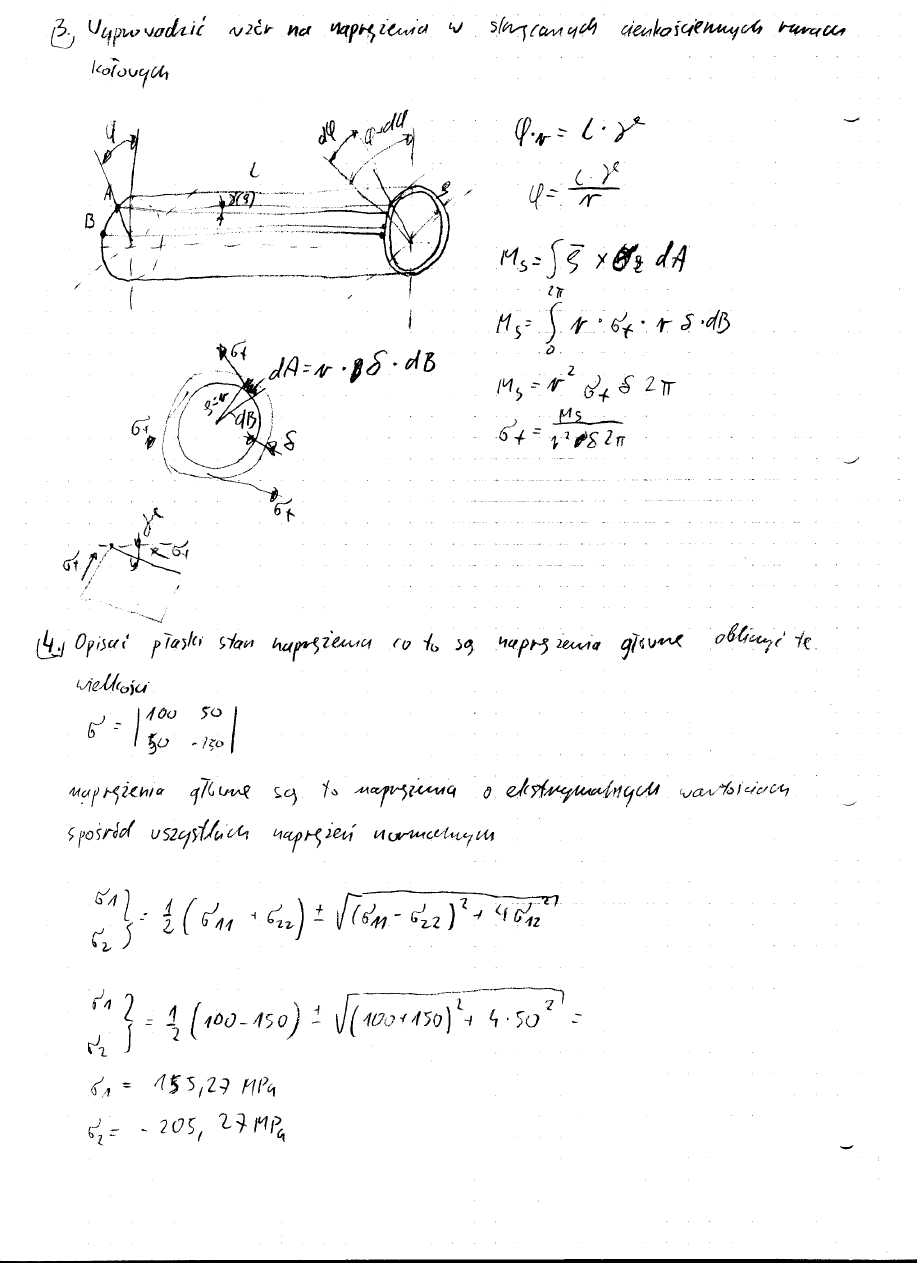 3. Wyprowadzić wzór na naprężenia w skręcanych cienkościennych rurach
kołowych
φ
dφ
φ+dφ
L
A
γ(ϱ)
ϱ
B
φ·r = L·γ
φ = L·γ / r
Ms = ∫ ϱ × σt dA
Ms = ∫₀^2π r · σt · r δ · dB
Ms = r² σt δ 2π
σt = Ms / r² δ 2π
σt
dA = r · δ · dB
ϱ=r
dB
σt
δ
σt
γ
σt
σt
4. Opisać płaski stan naprężenia co to są naprężenia główne obliczyć te
wielkości
σ = | 100 50 |
| 50 -150 |
naprężenia główne są to naprężenia o ekstrymalnych wartościach
spośród wszystkich naprężeń normalnych
σ1 σ2 } = 1/2 (σ11 + σ22) ± √((σ11 - σ22)² + 4σ12²)
σ1 σ2 } = 1/2 (100 - 150) ± √((100+150)² + 4·50²) =
σ1 = 155,27 MPa
σ2 = - 205,27 MPa